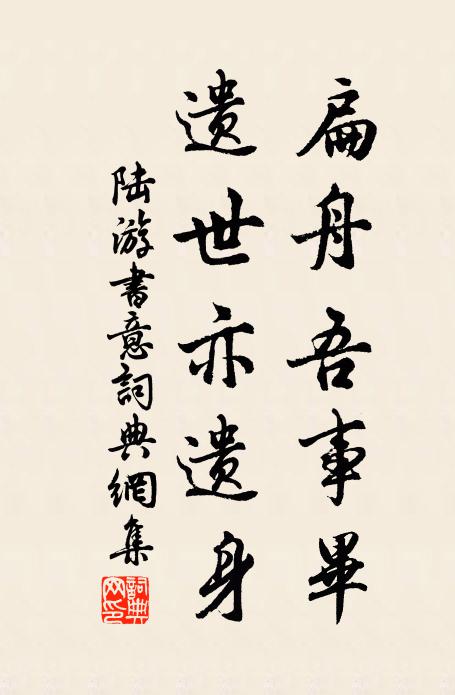 扁舟吾事畢
遺世亦遺身
陆游書意詞典網集
詞典网印